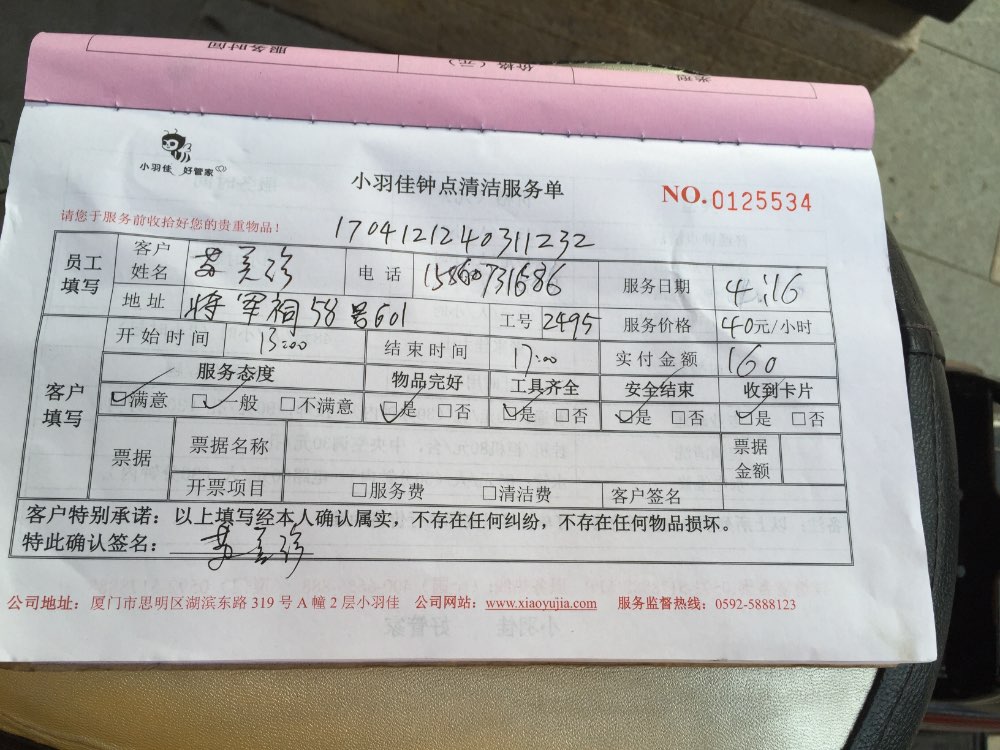 服务时间 价格（元） 类型
小羽佳 好管家
小羽佳钟点清洁服务单
NO.0125534
请您于服务前收拾好您的贵重物品！
1704121240311232
员工填写 客户姓名 苏美珍 电话 15860731686 服务日期 4.16
地址 将军祠58号601 工号 2495 服务价格 40元/小时
客户填写 开始时间 13:00 结束时间 17:00 实付金额 160
服务态度 物品完好 工具齐全 安全结束 收到卡片
☑满意 ☑一般 □不满意 ☑是 □否 ☑是 □否 ☑是 □否 ☑是 □否
票据 票据名称 票据金额
开票项目 □服务费 □清洁费 客户签名
客户特别承诺：以上填写经本人确认属实，不存在任何纠纷，不存在任何物品损坏。
特此确认签名： 苏美珍
公司地址：厦门市思明区湖滨东路 319 号 A 幢 2 层小羽佳 公司网站：www.xiaoyujia.com 服务监督热线：0592-5888123